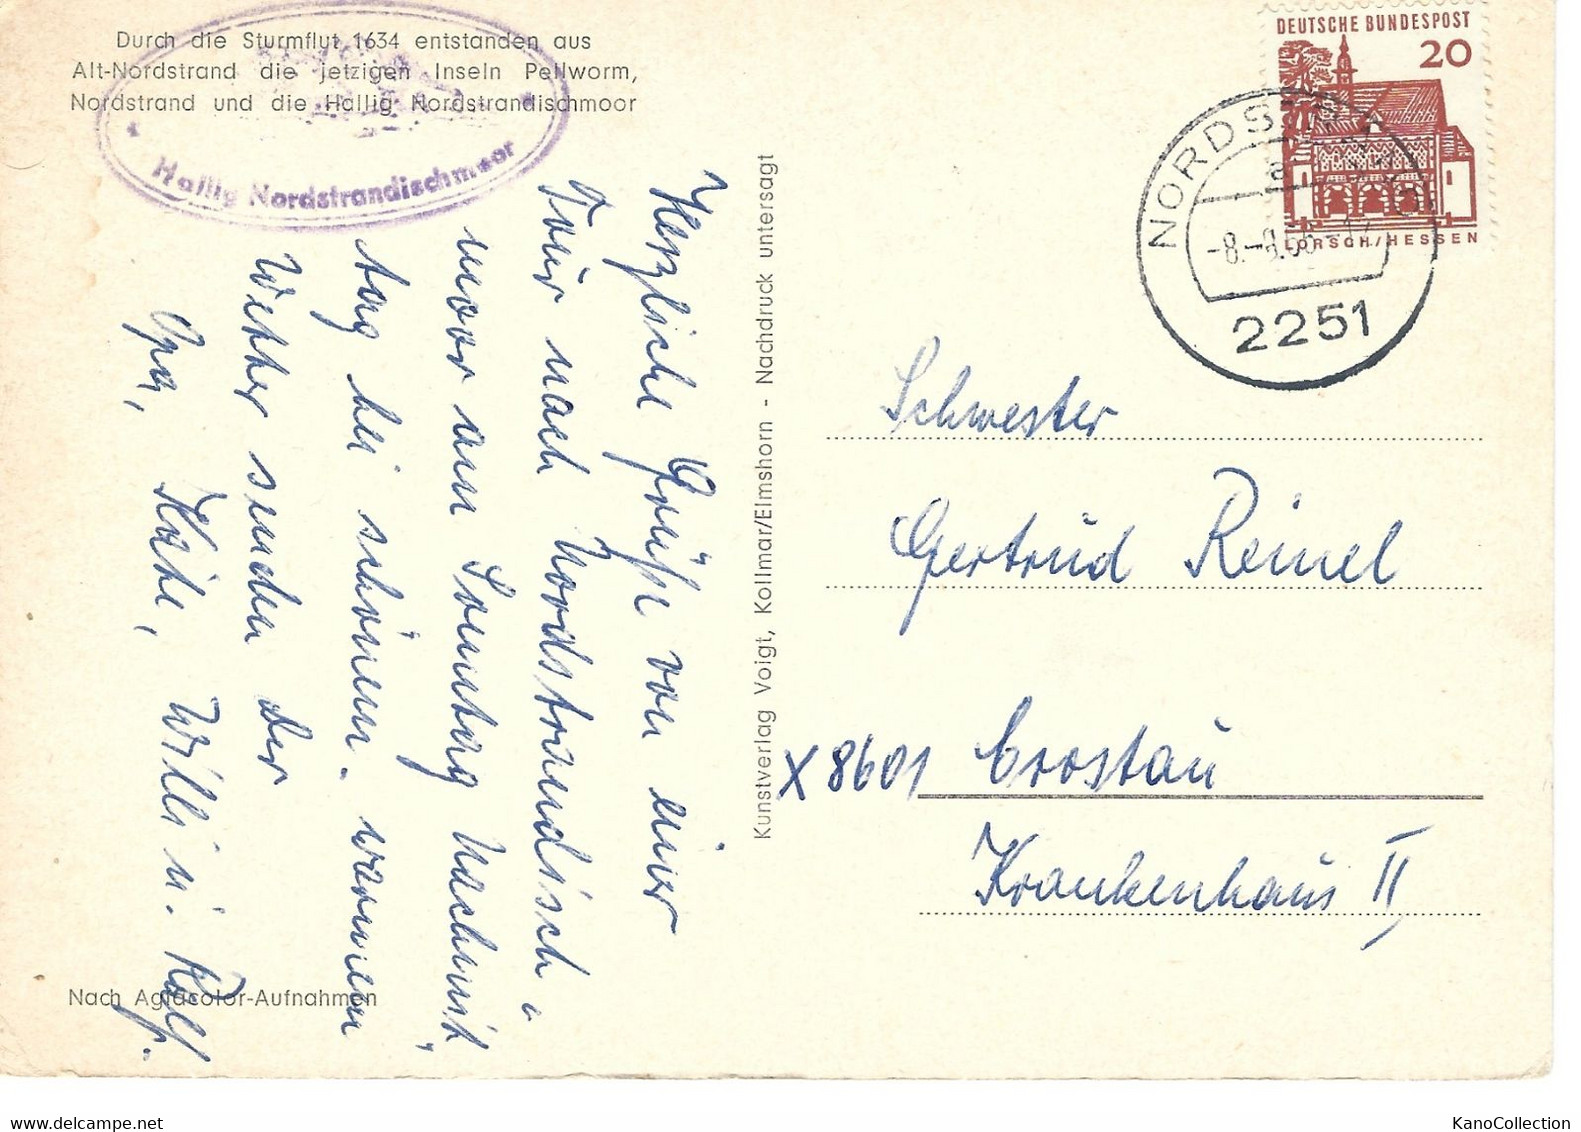 Durch die Sturmflut 1634 entstanden aus
Alt-Nordstrand die jetzigen Inseln Pellworm,
Nordstrand und die Hallig Nordstrandischmoor
Hallig Nordstrandischmoor
DEUTSCHE BUNDESPOST
20
LORSCH/HESSEN
2251
Herzliche Grüße von einer
Tour nach Nordstrandisch-
moor am Sonntag Nachmit,
tag bei schönem. warmen
Wetter senden der
Opa, Käthe, Willi u. Rolf.
Kunstverlag Voigt, Kollmar/Elmshorn - Nachdruck untersagt
Schwester
Gertrud Reinel
X 8601 Crostau
Krankenhaus II,
Nach Agfacolor-Aufnahmen
KanoCollection